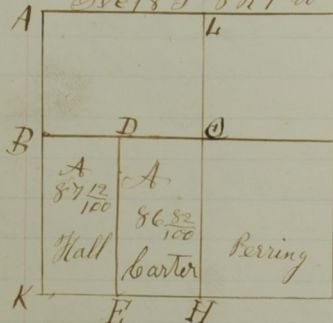 A L
B D O
A
87 12/100
Hall
A
86 82/100
Carter
Perring
K E H